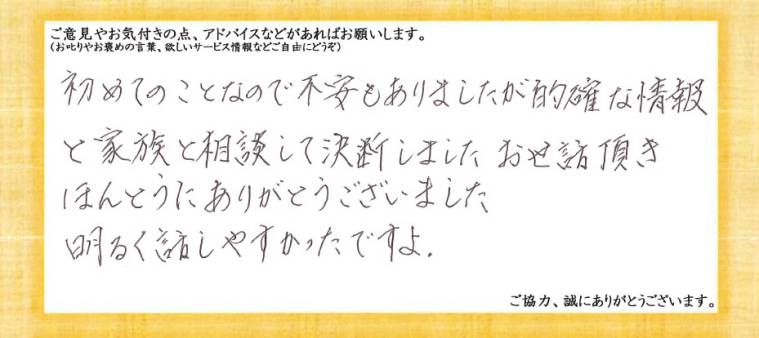 ご意見やお気付きの点、アドバイスなどがあればお願いします。
（お叱りやお褒めの言葉、欲しいサービス情報などご自由にどうぞ）
初めてのことなので不安もありましたが的確な情報
と家族と相談して決断しました お世話頂き
ほんとうにありがとうございました
明るく話しやすかったですよ.
ご協力、誠にありがとうございます。